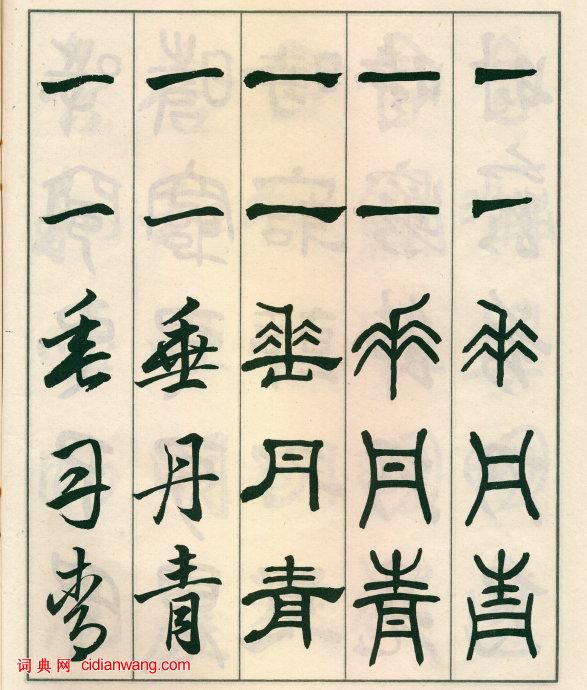 一一垂丹青
一一垂丹青
一一垂丹青
一一垂丹青
一一垂丹青
词典网 cidianwang.com